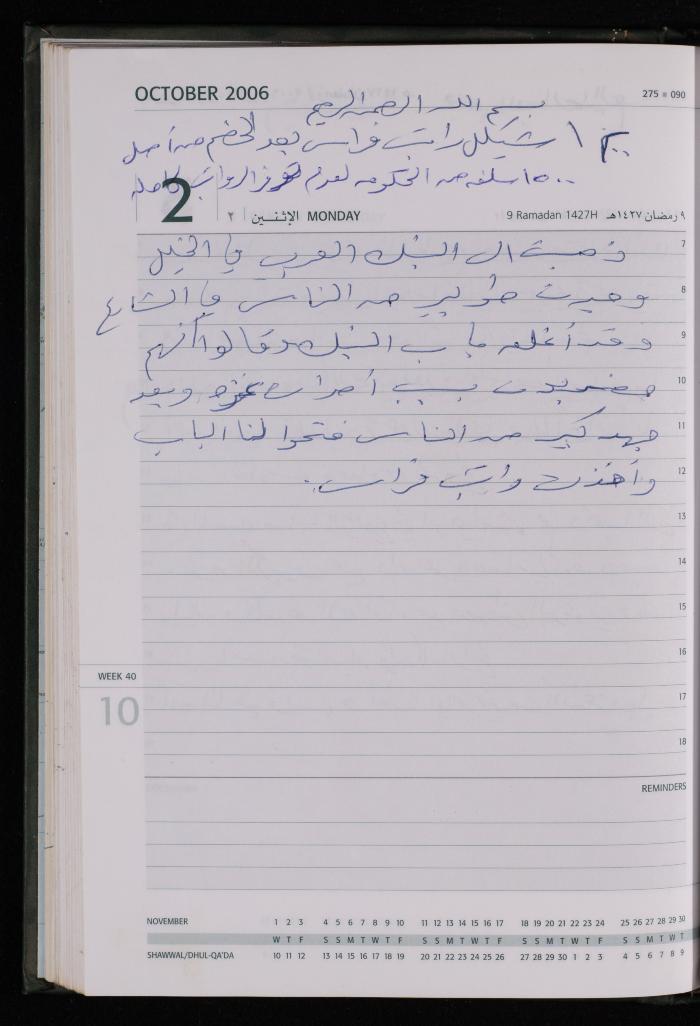 OCTOBER 2006
275 ■ 090
بسم الله الرحمن الرحيم
شيكل راتب فراس بعد الخصم من أصل
١٥٠٠ سلفه من الحكومه لعدم توفر الرواتب كامله
2
٢ الإثنــين MONDAY
9 Ramadan 1427H ٩ رمضان ١٤٢٧هـ
7 ذهبت الى البنك العربي في الخليل
8 وجدت طوابير من الناس في الشارع
9 وقد أغلق باب البنك وقالوا أنهم
10 مضربون بسبب أحداث غزه وبعد
11 جهد كبير من الناس فتحوا لنا الباب
12 وأخذت راتب فراس.
13
14
15
16
WEEK 40
10
17
18
REMINDERS
NOVEMBER 1 2 3 4 5 6 7 8 9 10 11 12 13 14 15 16 17 18 19 20 21 22 23 24 25 26 27 28 29 30
W T F S S M T W T F S S M T W T F S S M T W T F S S M T W T
SHAWWAL/DHUL-QA'DA 10 11 12 13 14 15 16 17 18 19 20 21 22 23 24 25 26 27 28 29 30 1 2 3 4 5 6 7 8 9